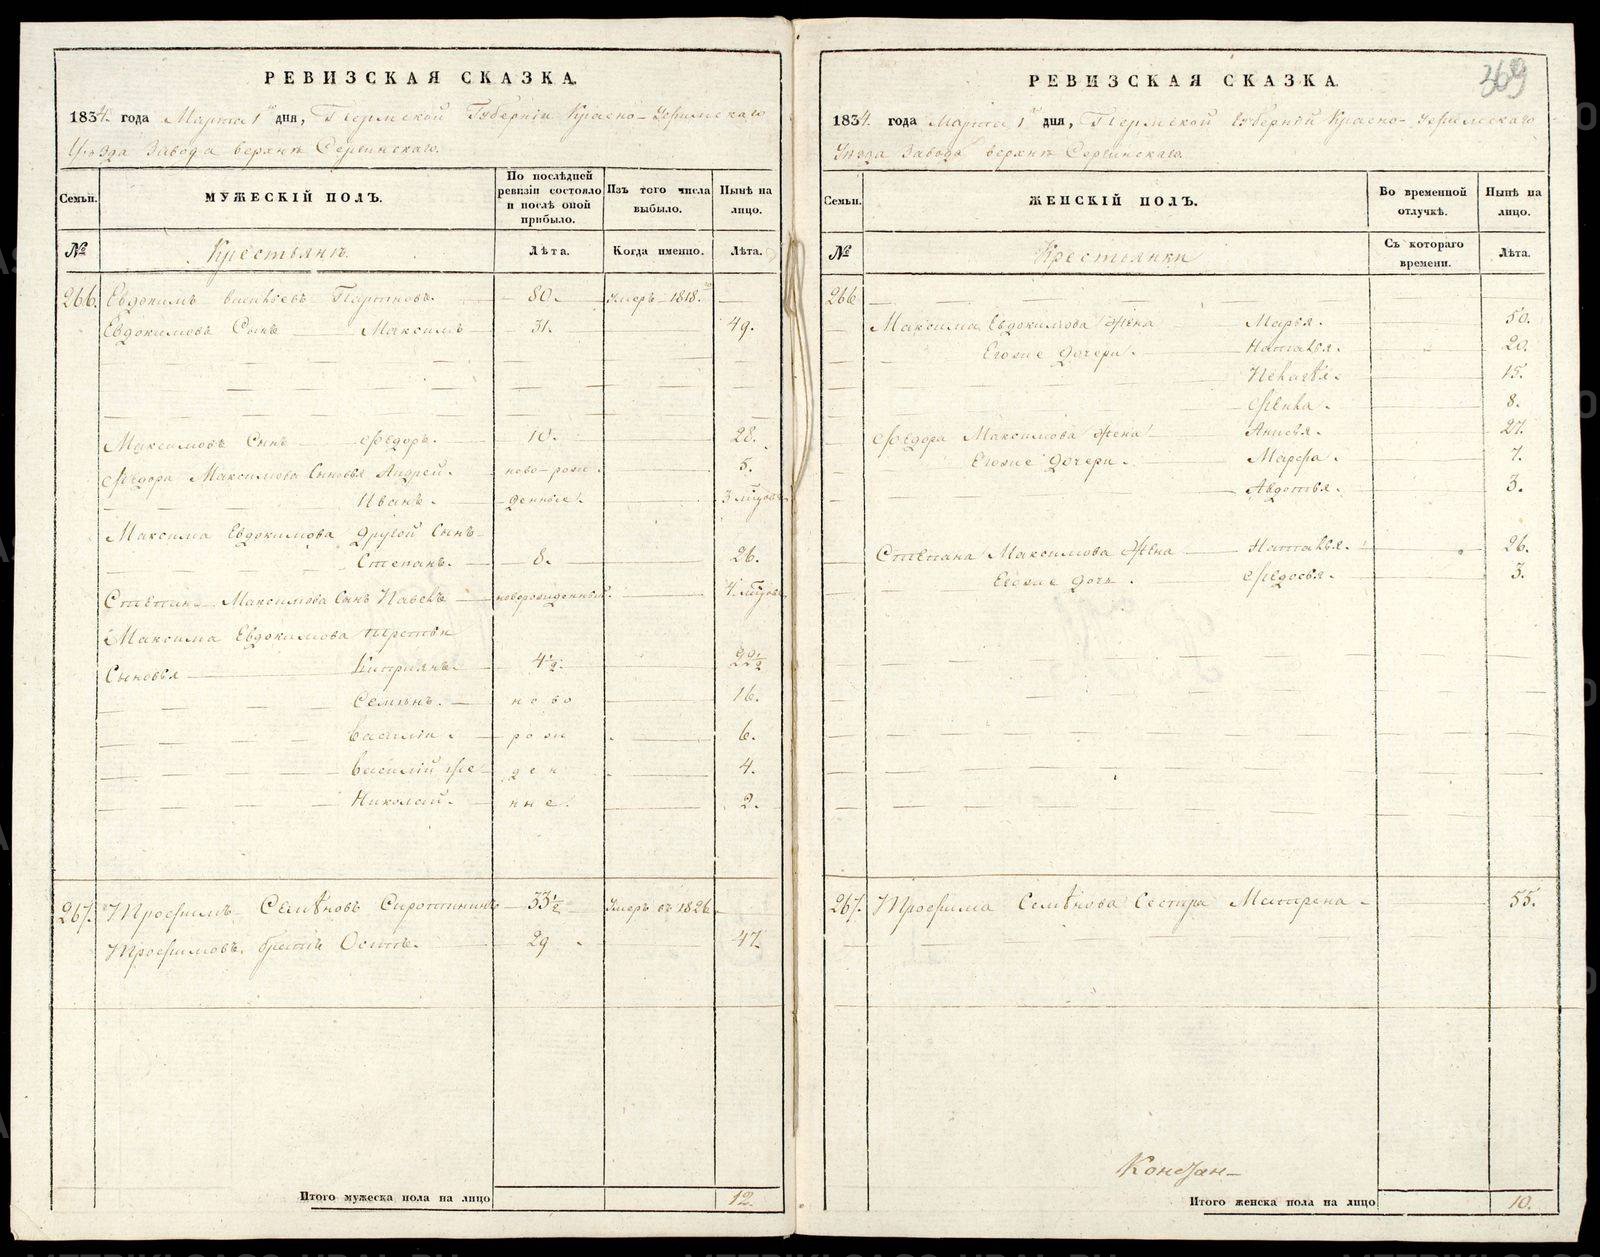 РЕВИЗСКАЯ СКАЗКА.
1834. года Марта 1 дня, Пермской Губернии Красно-Уфимскаго
Уѣзда Завода верхнѣ Сергинскаго.
Семьи.
МУЖЕСКІЙ ПОЛЪ.
По послѣдней ревизіи состояло и послѣ оной прибыло.
Изъ того числа выбыло.
Нынѣ на лицо.
№
Крестьянѣ.
Лѣта.
Когда именно.
Лѣта.
266. Евдокимъ Портновъ. 80. Умеръ 1818.
Евдокимовъ Сынъ Максимъ 31. 49.
Максимовъ Сынъ Федоръ. 10. 28.
Федора Максимова Сыновья Андрей. ново-рож. 5.
Иванъ. денные. 3
Максима Евдокимова другой Сынъ
Степанъ. 8. 26.
Максимова Сынъ Павелъ новорожденный. 4.
Максима Евдокимова третьи
Сыновья Киприянъ. 4½. 22½
Семѣнъ. ново 16.
Василій. рож 6.
Василій же ден 4.
Николай. ные. 2.
267. Трофимъ Семѣновъ Сиротининъ 33½ Умеръ въ 1826.
Трофимовъ братъ Осипъ. 29 47.
Итого мужеска пола на лицо 12.
РЕВИЗСКАЯ СКАЗКА.
369
1834. года Марта 1 дня, Пермской Губерніи Красно-Уфимскаго
Уѣзда Завода верхнѣ Сергинскаго.
Семьи.
ЖЕНСКІЙ ПОЛЪ.
Во временной отлучкѣ.
Нынѣ на лицо.
№
Крестьянки
Съ котораго времени.
Лѣта.
266
Максима Евдокимова Жена Марья. 50.
Егоже дочери. Наталья. 20.
15.
8.
Федора Максимова Жена Анисья. 27.
Егоже дочери. Марфа. 7.
Авдотья. 3.
Степана Максимова Жена Наталья. 26.
Егоже дочь. Федосья. 3.
267. Трофима Семѣнова Сестра Матрена 55.
Итого женска пола на лицо 10.